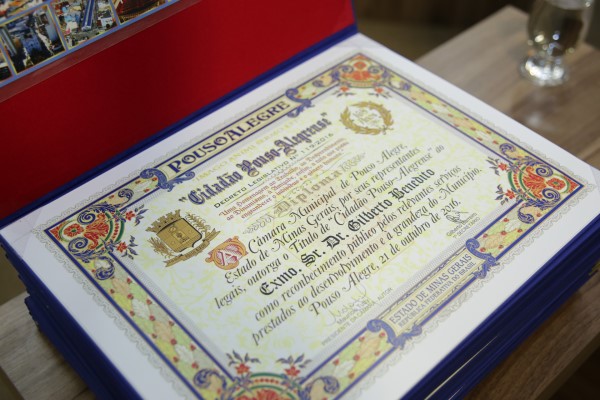 POUSO ALEGRE
"Cidadão Pouso-Alegrense"
DECRETO LEGISLATIVO Nº
Diploma
A Câmara Municipal de Pouso Alegre,
Estado de Minas Gerais, por seus representantes
legais, outorga o Título de Cidadão Pouso-Alegrense ao
Exmo. Sr. Dr. Gilberto Benedito
como reconhecimento público pelos relevantes serviços
prestados ao desenvolvimento e à grandeza do Município.
Pouso Alegre, 21 de outubro de 2016.
ESTADO DE MINAS GERAIS
REPÚBLICA FEDERATIVA DO BRASIL
POUSO ALEGRE